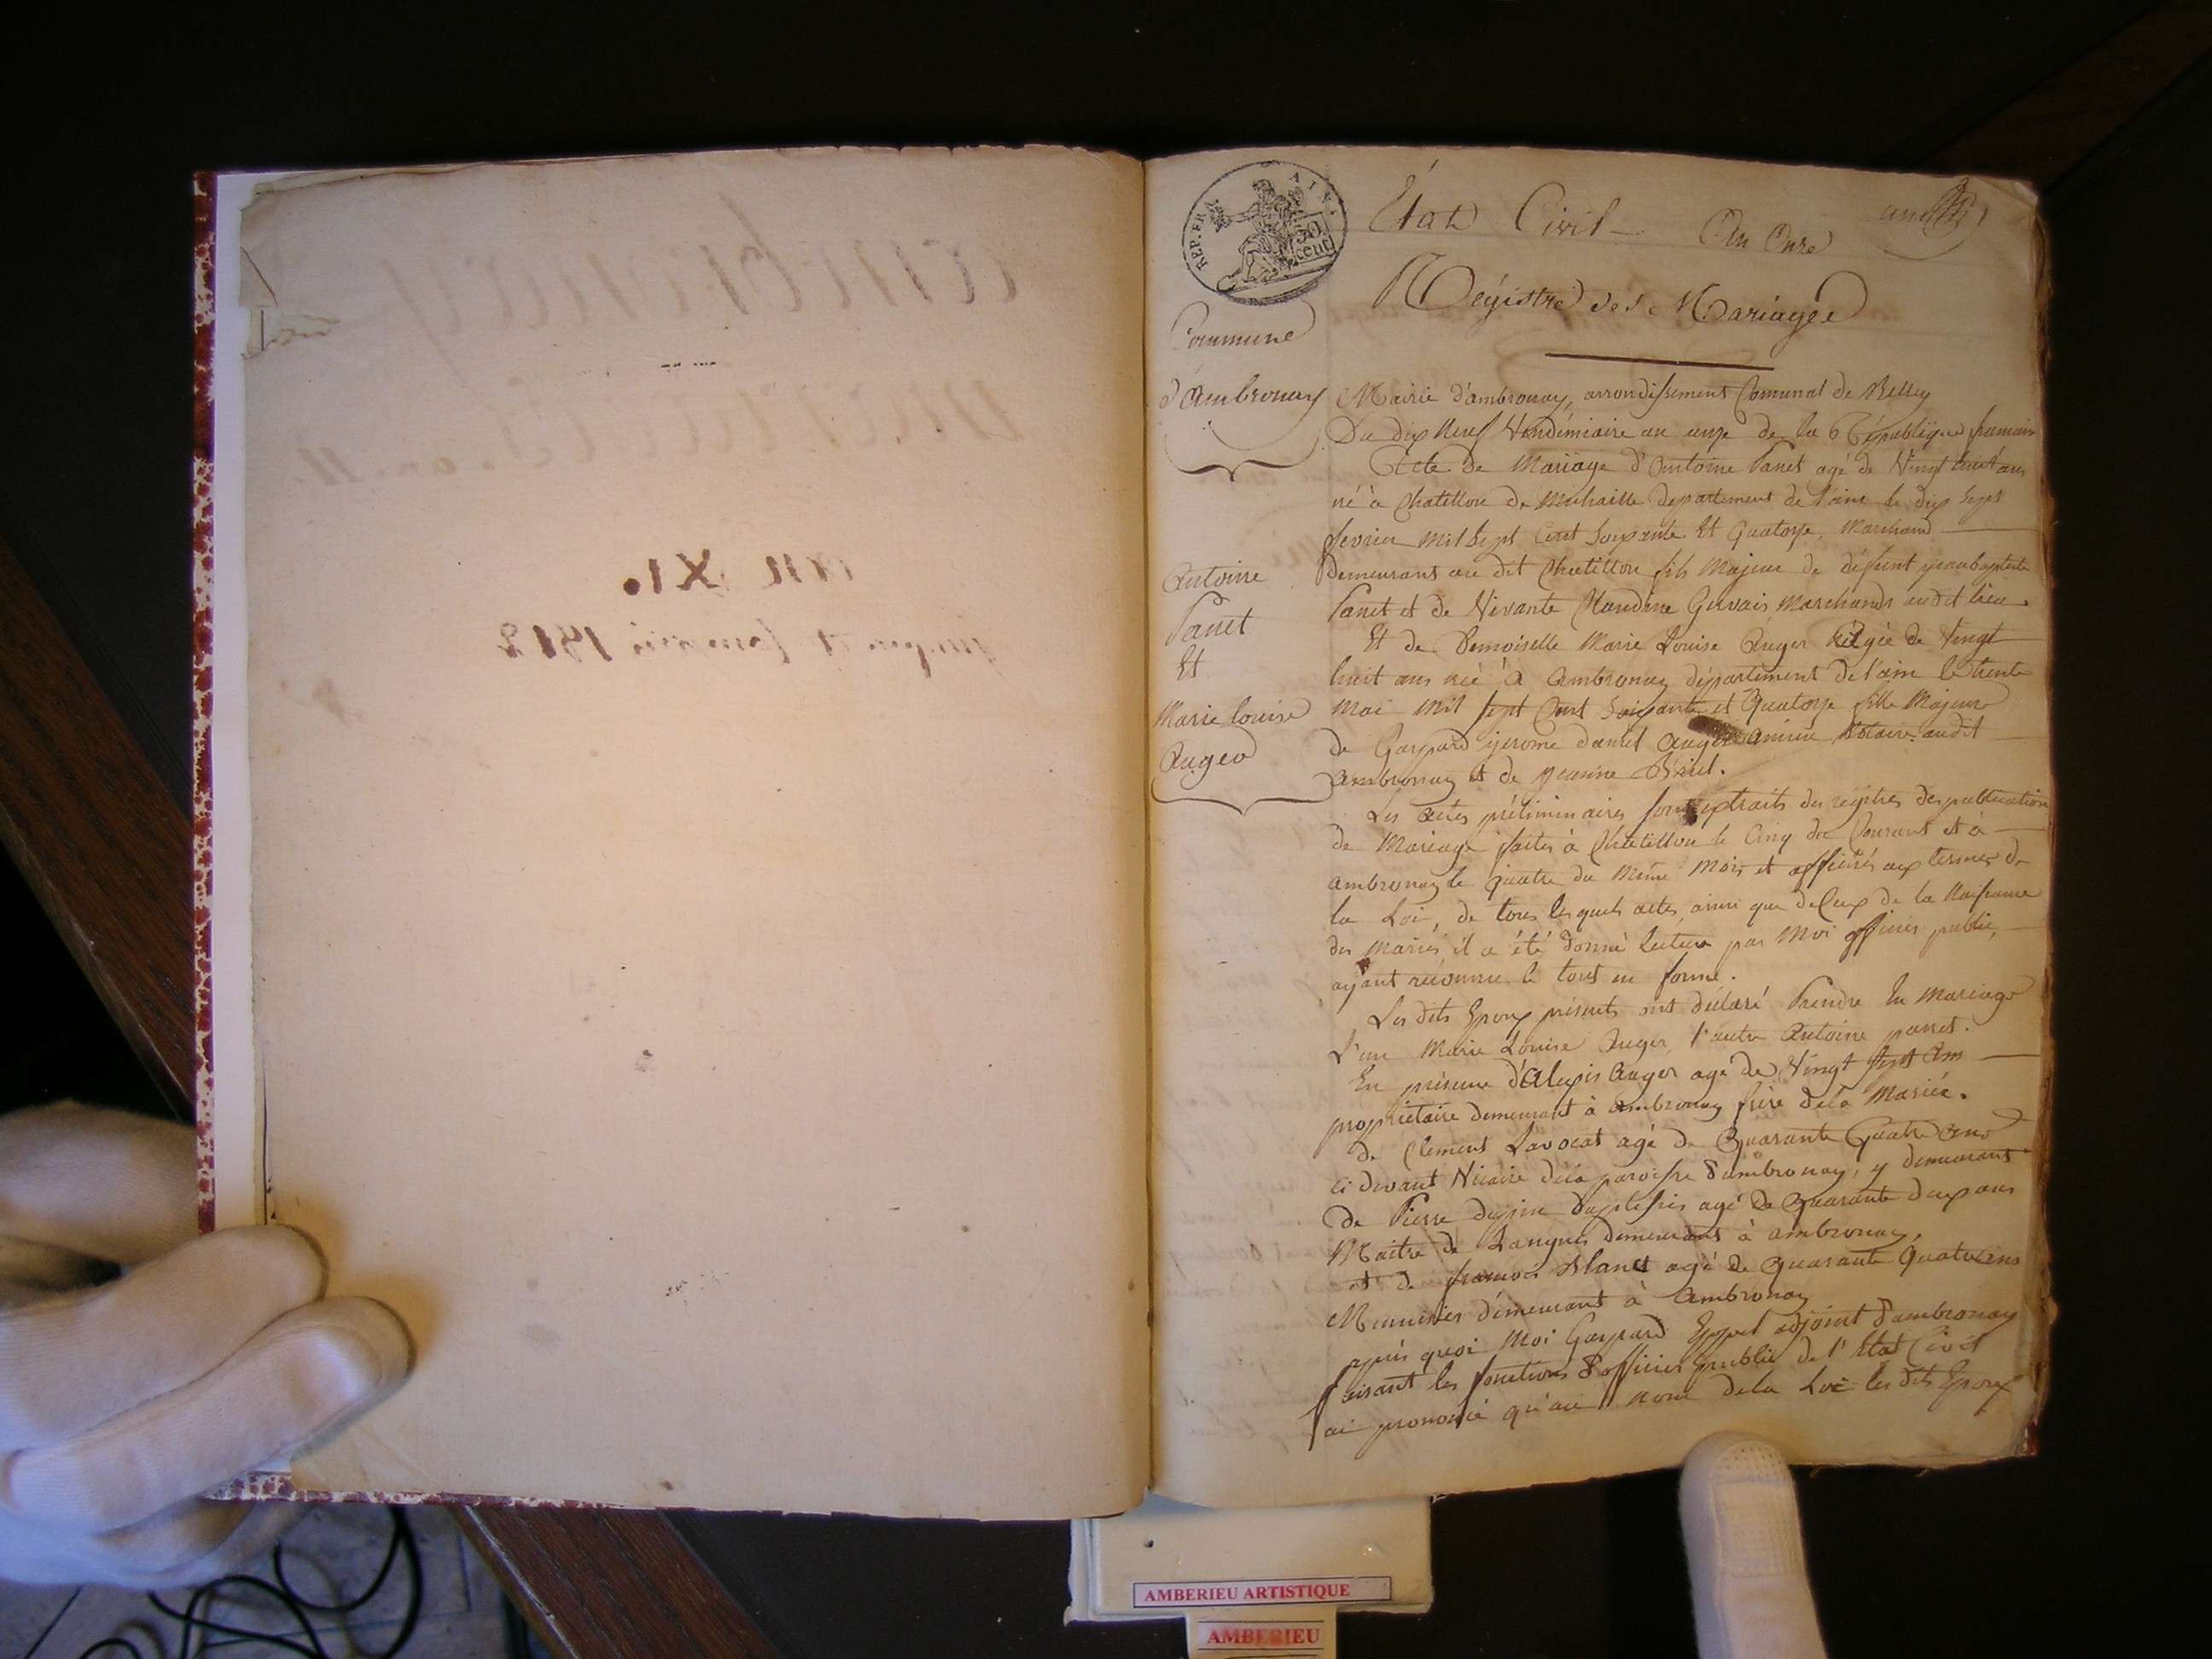 REP. FRA.
50
CENT
État Civil An Onze
Régistre des Mariages
Commune
d'Ambronay
Mairie d'ambronay, arrondissement Comunal de Belley
Du dix Neuf Vendémiaire an onze de la République francaise
Acte de Mariage d'Antoine Panet agé de Vingt huit ans
né à Chatillon de Michaille departement de l'ain le dix Sept
fevrier mil Sept Cent Soixante Et Quatorze, Marchand
Demeurant au dit Chatillon fils Majeur de défunt jeanbaptiste
Panet et de Vivante Claudine Gervais Marchands audit lieu
Et de Demoiselle Marie Louise Auger agée de Vingt
huit ans née à Ambronay département de l'ain le trente
Mai Mil Sept Cent Soixante et Quatorze fille Majeure
de Gaspard jerome daniel Auger ancien Notaire audit
Ambronay et de jeanne
Antoine
Panet
Et
Marie louise
Auger
Les Actes préliminaires sont extraits des régistres des publications
de Mariage faites à Chatillon le Cinq du Courant et à
Ambronay le quatre du Même Mois et affichés aux termes de
la Loi, de tous lesquels actes, ainsi que de Ceux de la Naissance
des Mariés il a été donné lecture par Moi officier public,
ayant reconnu le tout en forme.
Les dits Epoux présents ont déclaré Prendre En Mariage
L'un Marie Louise Auger, l'autre Antoine panet.
En présence d'Alexis Auger agé de Vingt Sept Ans
propriétaire demeurant à Ambronay frère de la Mariée.
de Clement Lavocat agé de Quarante Quatre Ans
ci devant Vicaire de la paroisse d'ambronay, y demeurant
De Pierre agé de Quarante deux ans
Maitre de Langues demeurant à ambronay,
et de francois Blanc agé de Quarante Quatre ans
Menuisier demeurant à Ambronay
après quoi Moi Gaspard adjoint d'ambronay
faisant les fonctions d'officier public de l'Etat Civil
ai prononcé qu'au nom de la Loi les dits Epoux
AMBERIEU ARTISTIQUE
AMBERIEU